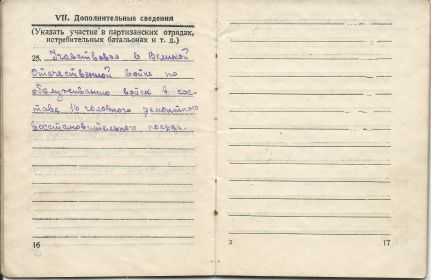 VII. Дополнительные сведения
(Указать участие в партизанских отрядах,
истребительных батальонах и т. д.)
25. Участвовал в Великой
Отечественной войне по
обслуживанию войск в сос-
таве 16 головного ремонтного
восстановительного поезда.
16
2 17